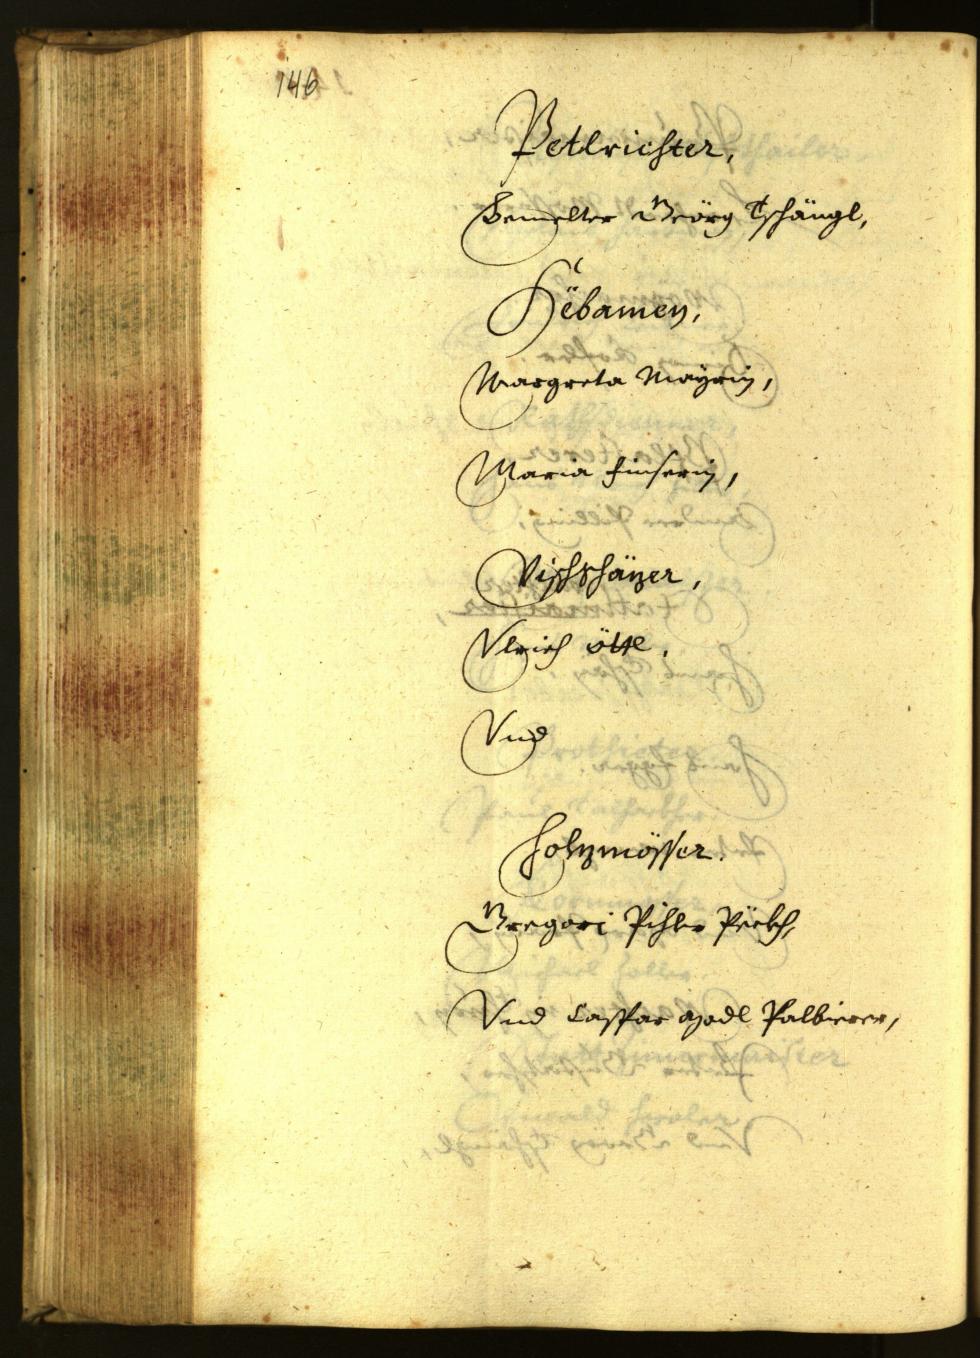 146
Petlrichter,
Bemelter Geörg Tschängl,
Hëbamen,
Margreta Maÿrin,
Maria Einserin,
Vischschäzer,
Vlrich öttl,
Vnd
Holzmösser.
Gregori Pihler Pëckh,
Vnd Casspar Palbierer,